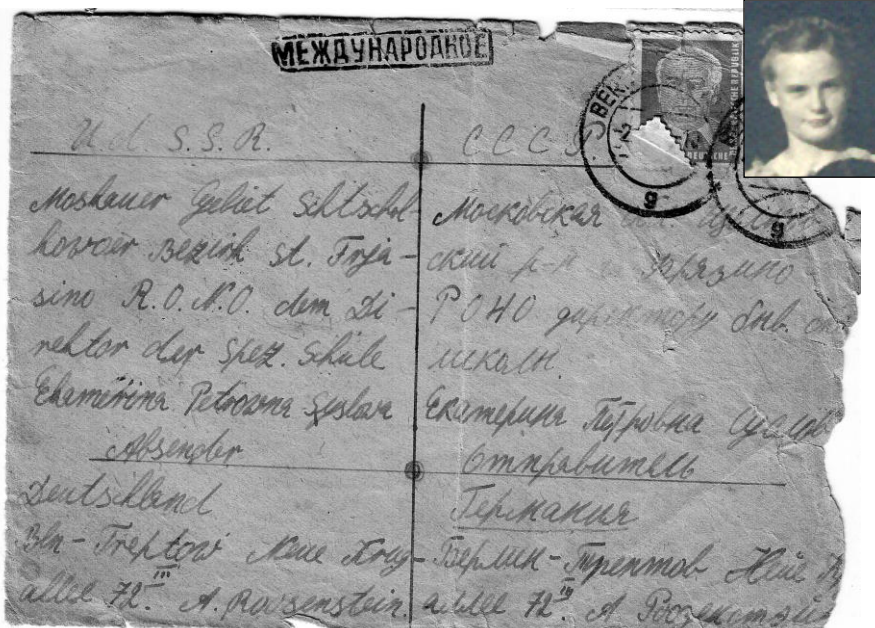 МЕЖДУНАРОДНОЕ
U. d. S. S. R.
Moskauer Gebiet Schtschol-
kowoer Bezirk St. Frja-
sino R.O.N.O. dem Di-
rektor der Spez. Schule
Ekaterina Petrowna Suslova
Absender
Deutschland
Bln - Treptow Neue Krug-
allee 72 III. A. Roosenstein.
С С С
Московская
ский р-н Фрязино
РОНО директору быв.
школы.
Екатерина Петровна Суслов
Отправитель
Германия
Берлин - Трептов Нейе
аллее 72 III А
DEUTSCHE
9
9